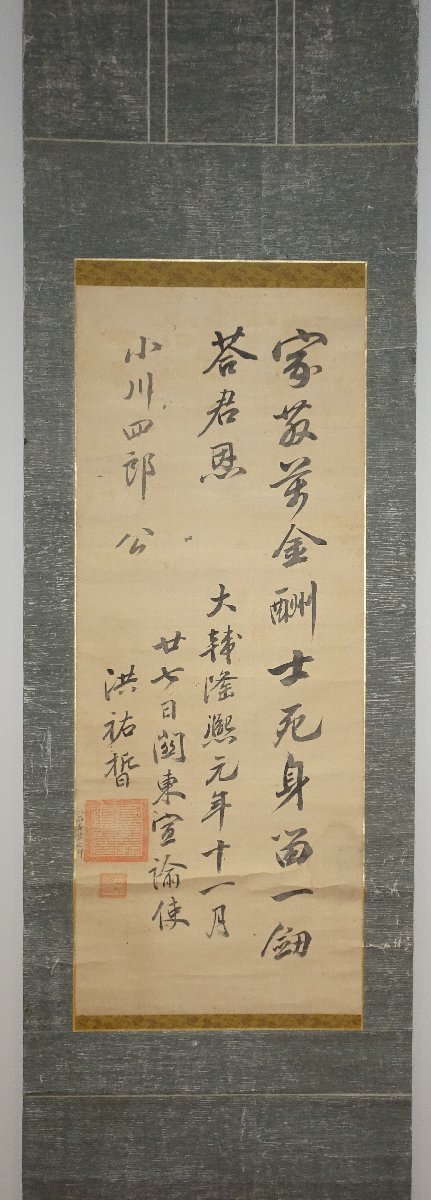 家散萬金酬士死身留一劒
答君恩
大韓隆熙元年十一月
廿七日關東宣諭使
洪祐晳
小川四郎 公